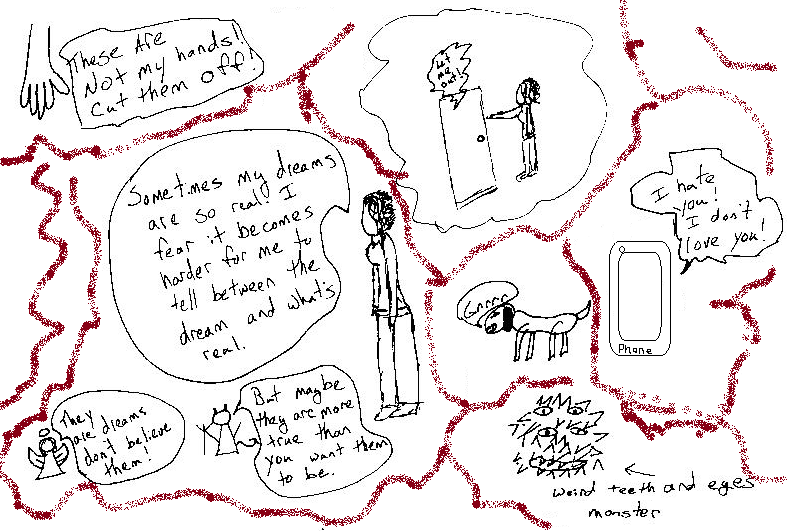 These Are
Not my hands!
Cut them off!
Let
me
out!!
Sometimes my dreams
are so real! I
fear it becomes
harder for me to
tell between the
dream and what's
real.
I hate
you!
I don't
love you!
Grrrr
Phone
They
are dreams
don't believe
them!
But maybe
they are more
true than
you want them
to be.
weird teeth and eyes
monster